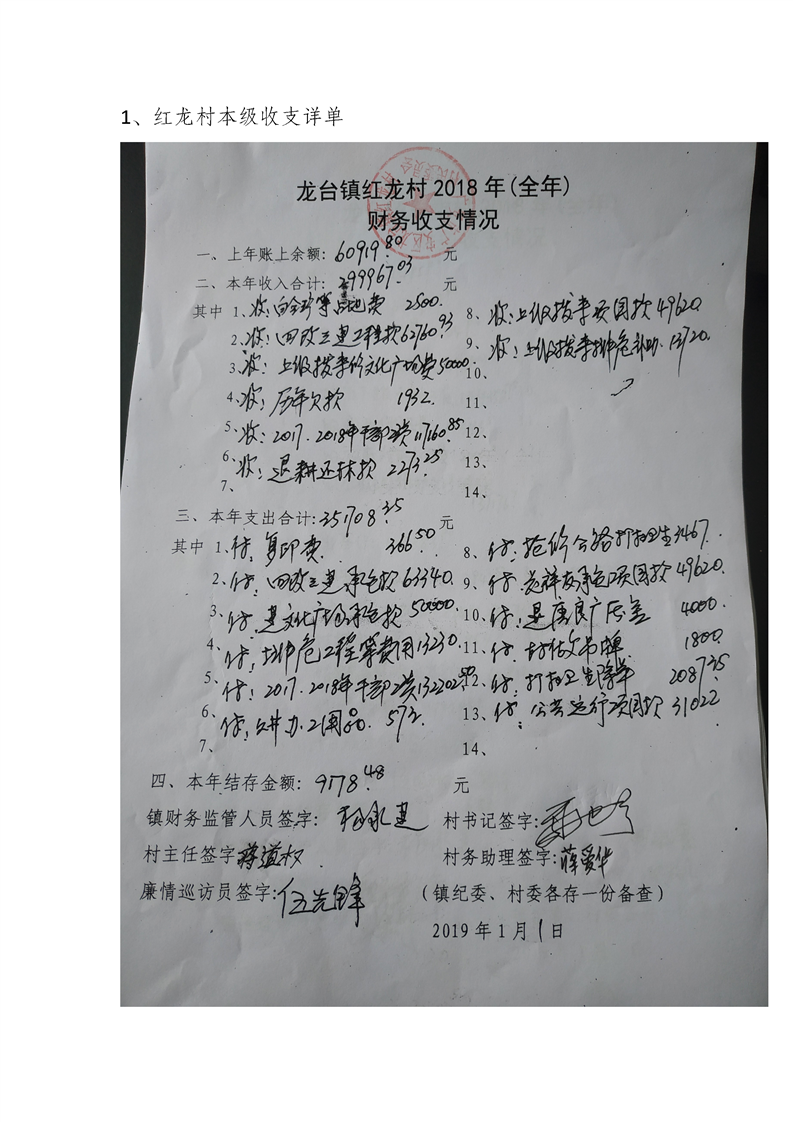 1、红龙村本级收支详单
龙台镇红龙村2018年(全年)
财务收支情况
一、上年账上余额: 60919.80 元
二、本年收入合计: 299967.03 元
其中 1、收:白全珍等占地费 2500.
2、收:四改三建工程款62760.93
3、收: 上级拨来修文化广场费50000.
4、收:历年欠款 1932.
5、收:2017.2018年干部工资117160.85
6、收:退耕还林款 2273.25
7、
8、收:上级拨来项目款49620.
9、收:上级拨来排危补助.13720.
10、
11、
12、
13、
14、
三、本年支出合计:351708.35 元
其中 1、付:复印费 366.50
2、付:四改三建承包款63340.
3、付:建文化广场承包款50000.
4、付:排危工程等费用13230.
5、付:2017.2018年干部工资132202.50
6、付:办公用品. 572.
7、
8、付:抢修公路打扫卫生3467.
9、付:承包项目款49620.
10、付: 4000.
11、付:吊牌 1800.
12、付:打扫卫生除草 2087.35
13、付:公共运行项目款31022
14、
四、本年结存金额: 9178.48 元
镇财务监管人员签字: 杨永建 村书记签字:
村主任签字:蒋道权 村务助理签字:薛爱华
廉情巡访员签字:伍先锋 (镇纪委、村委各存一份备查)
2019年1月1日